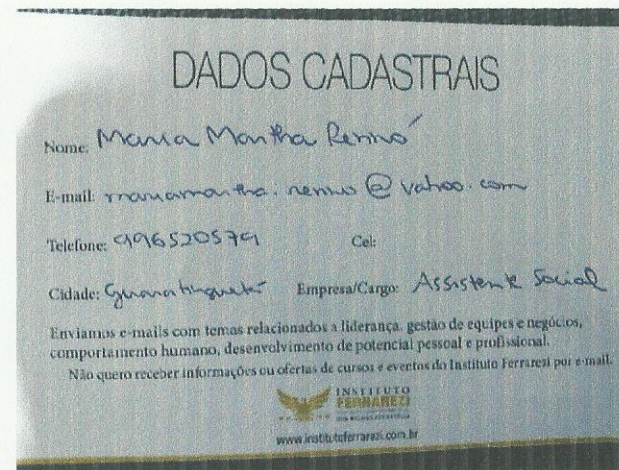 DADOS CADASTRAIS
Nome: Maria Martha Rennó
E-mail: mariamartha.renno@yahoo.com
Telefone: 996520579 Cel:
Cidade: Guaratinguetá Empresa/Cargo: Assistente Social
Enviamos e-mails com temas relacionados a liderança, gestão de equipes e negócios,
comportamento humano, desenvolvimento de potencial pessoal e profissional.
Não quero receber informações ou ofertas de cursos e eventos do Instituto Ferrarezi por e-mail.
INSTITUTO
FERRAREZI
www.institutoferrarezi.com.br